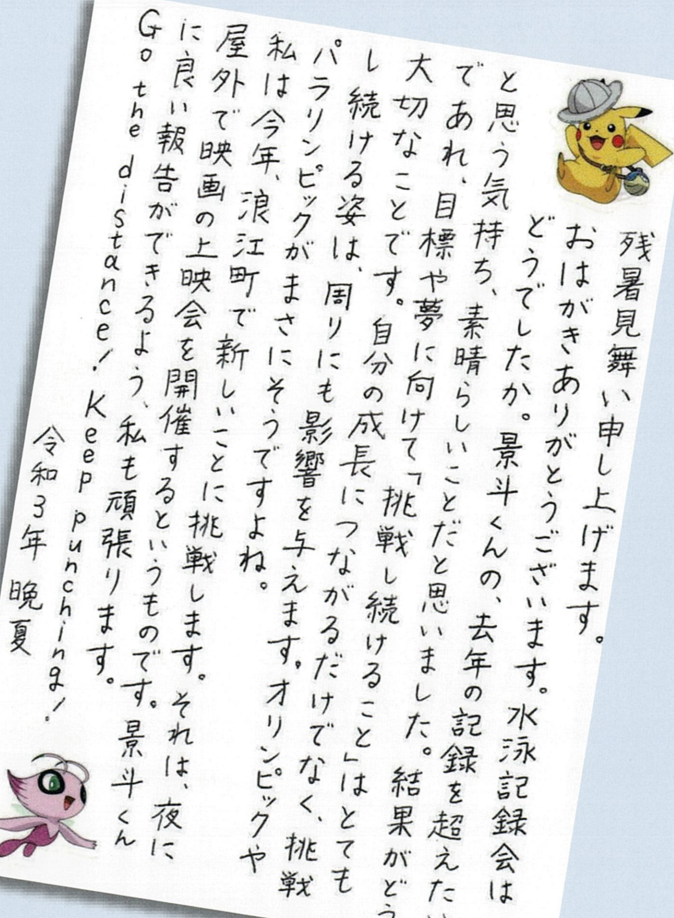 残暑見舞い申し上げます。
おはがきありがとうございます。水泳記録会は
どうでしたか。景斗くんの、去年の記録を超えたい
と思う気持ち、素晴らしいことだと思いました。結果がどう
であれ、目標や夢に向けて「挑戦し続けること」はとても
大切なことです。自分の成長につながるだけでなく、挑戦
し続ける姿は、周りにも影響を与えます。オリンピックや
パラリンピックがまさにそうですよね。
私は今年、浪江町で新しいことに挑戦します。それは、夜に
屋外で映画の上映会を開催するというものです。景斗くん
に良い報告ができるよう、私も頑張ります。
Go the distance! Keep punching!
令和3年 晩夏